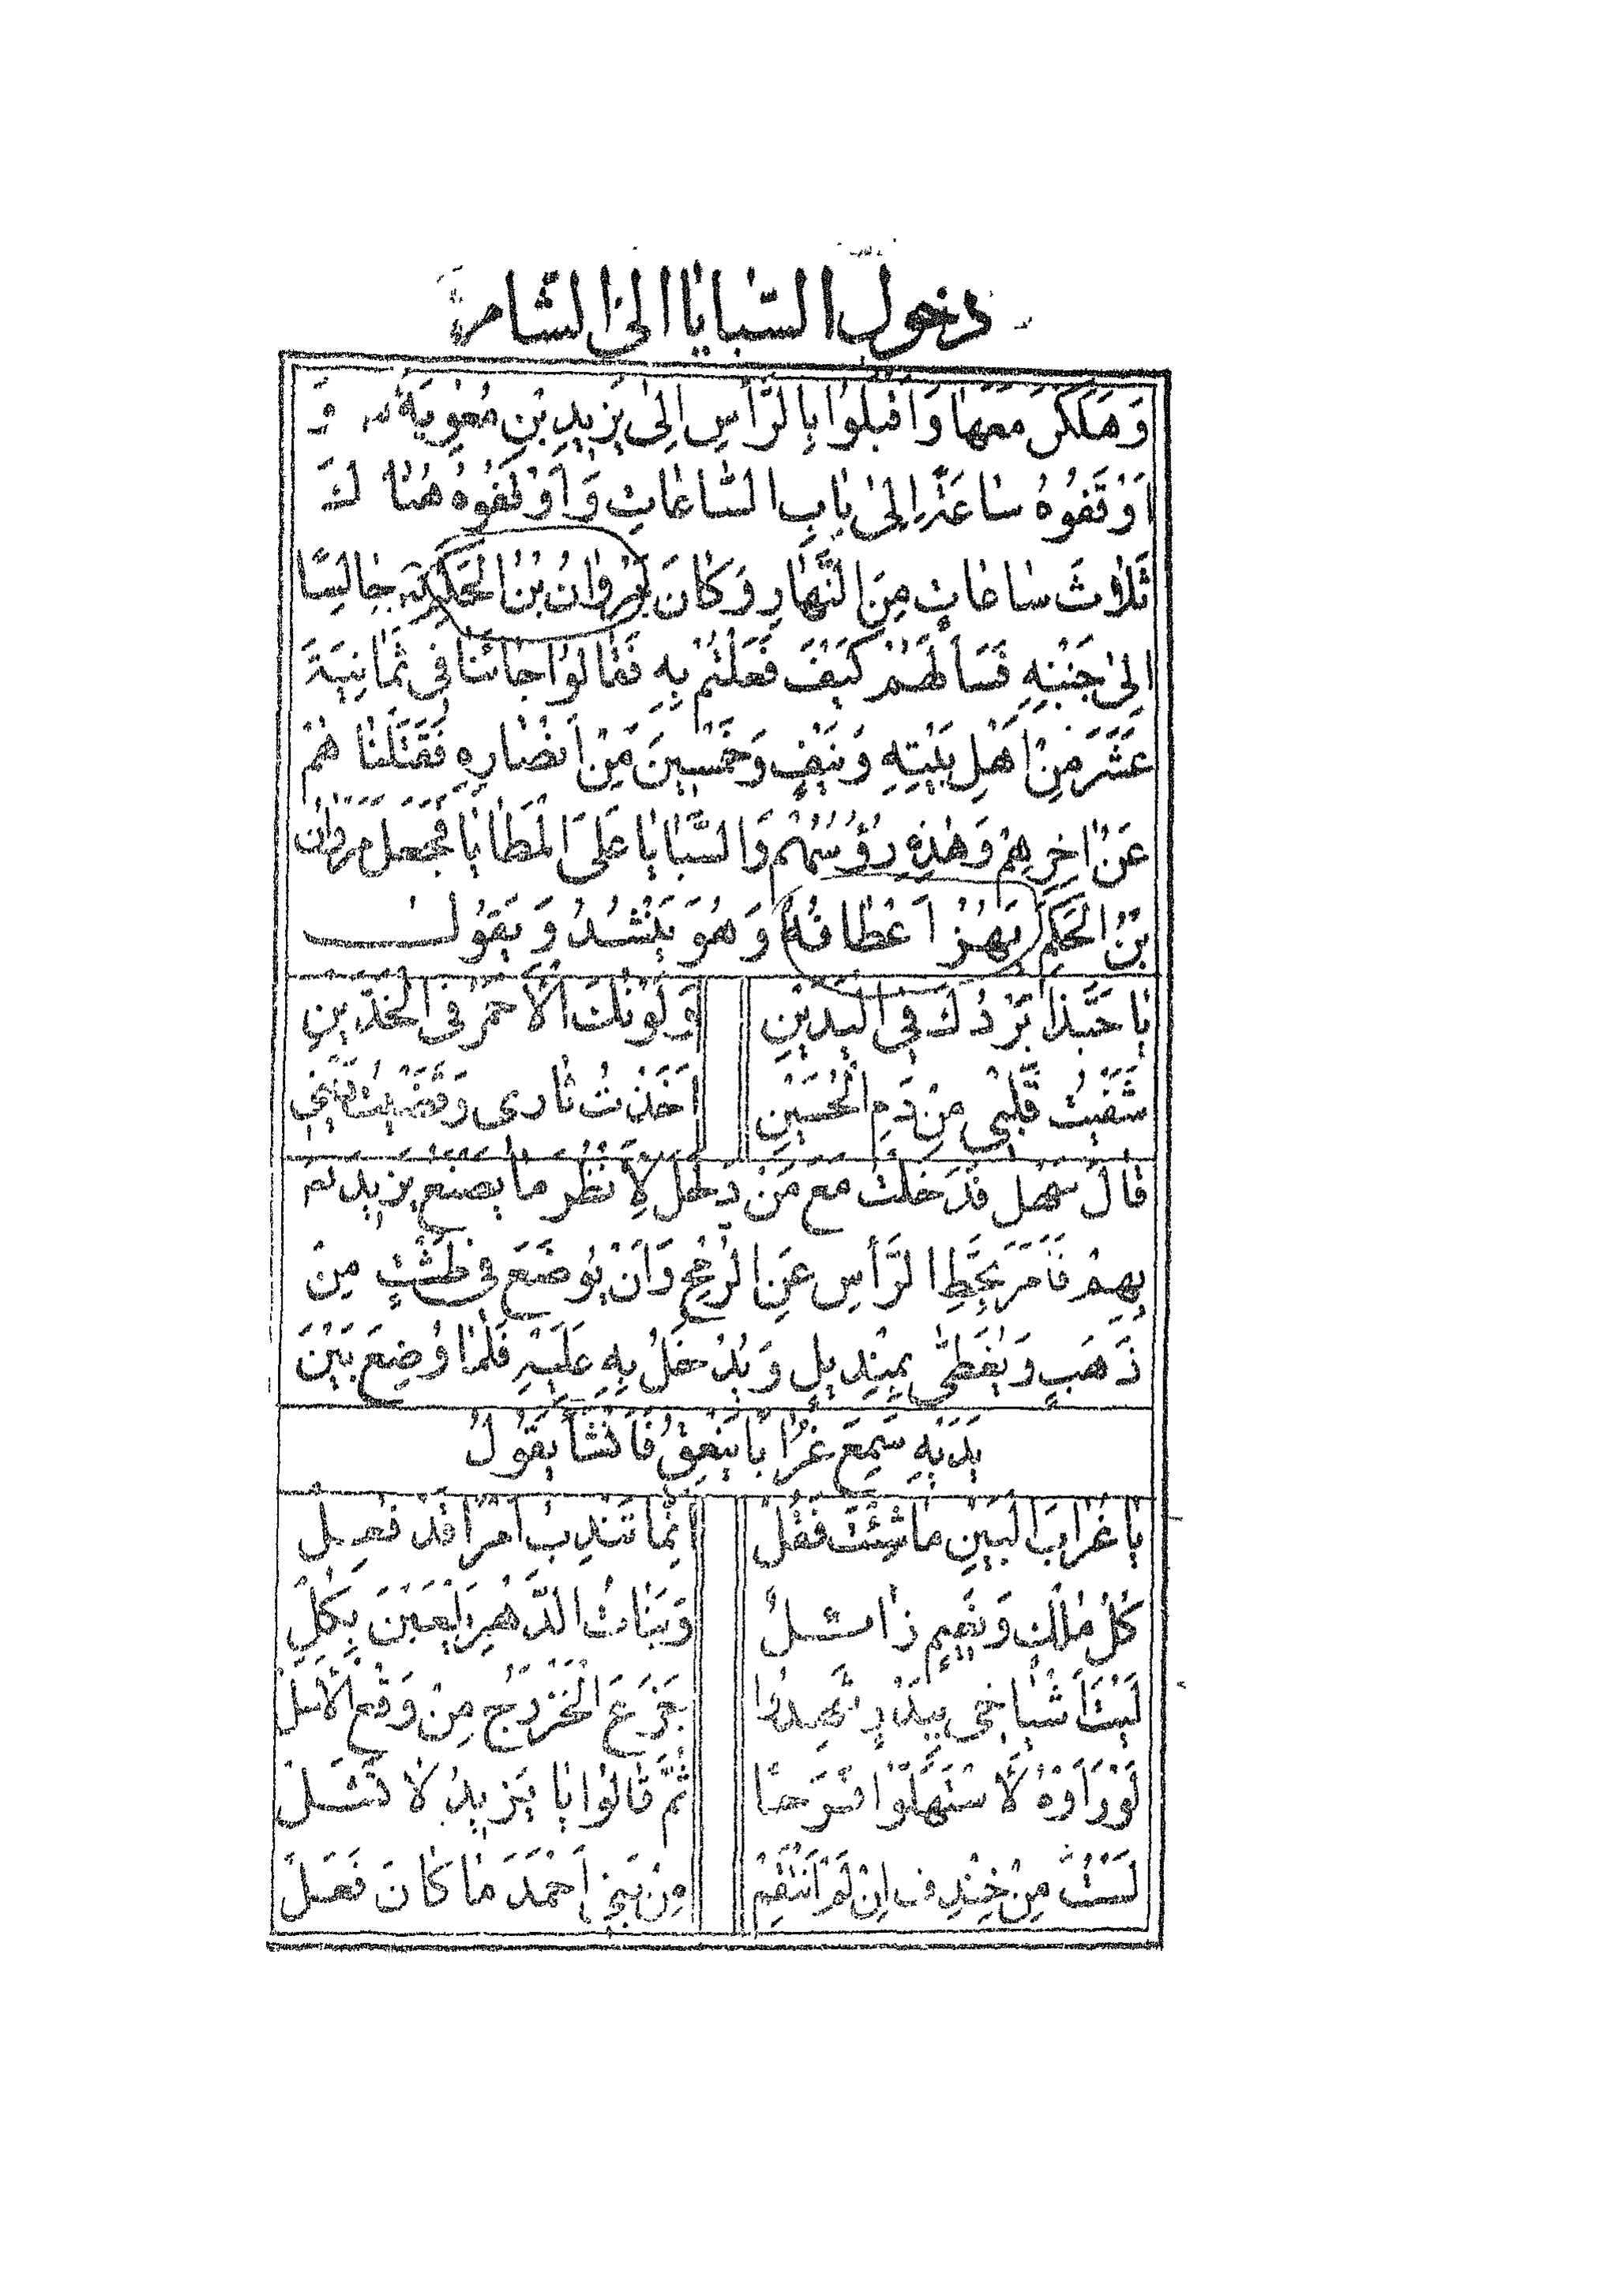 دخول السّبايا الى الشام
وَهَلَكْنَ مَعَهَا وَاَقْبَلُوا بِالرَّأْسِ اِلىٰ يَزِيدِ بْنِ مُعٰوِيَةَ وَ
اَوْقَفُوهُ سٰاعَةً اِلىٰ بٰابِ السّٰاعٰاتِ وَاَوْقَفُوهُ هُنٰا لَكَ
ثَلٰاثَ سٰاعٰاتٍ مِنَ النَّهٰارِ وَكٰانَ مَرْوٰانُ بْنُ الْحَكَمِ جٰالِسًا
اِلىٰ جَنْبِهِ فَسَأَلَهُمْ كَيْفَ فَعَلْتُمْ بِهِ فَقٰالُوا جٰائَنٰا فِي ثَمٰانِيَةَ
عَشَرَ مِنْ اَهْلِ بَيْتِهِ وَنَيِّفٍ وَخَمْسِينَ مِنْ اَنْصٰارِهِ فَقَتَلْنٰا هُمْ
عَنْ اٰخِرِهِمْ وَهٰذِهِ رُؤُسُهُمْ وَالسَّبٰايٰا عَلَى الْمَطٰايٰا فَجَعَلَ مَرْوٰانُ
بْنُ الْحَكَمِ يَهُزُّ اَعْطٰافَهُ وَهُوَ يَنْشُدُ وَيَقُولُ
يٰا حَبَّذٰا بَرْدُكَ فِي الْيَدَيْنِ وَلَوْنُكَ الْاَحْمَرُ فِي الْخَدَّيْنِ
شَفَيْتُ قَلْبِي مِنْ دَمِ الْحُسَيْنِ اَخَذْتُ ثٰارِي وَقَضَيْتُ دَيْنِي
قٰالَ سَهْلٌ فَدَخَلْتُ مَعَ مَنْ دَخَلَ لِاَنْظُرَ مٰا يَصْنَعُ يَزِيدُ
بِهِمْ فَاَمَرَ بِحَطِّ الرَّأْسِ عَنِ الرُّمْحِ وَاَنْ يُوضَعَ فِي طَشْتٍ مِنْ
ذَهَبٍ وَيُغَطّٰى بِمِنْدِيلٍ وَيُدْخَلُ بِهِ عَلَيْهِ فَلَمّٰا وُضِعَ بَيْنَ
يَدَيْهِ سَمِعَ غُرٰابًا يَنْعِقُ فَاَنْشَأَ يَقُولُ
يٰا غُرٰابَ الْبَيْنِ مٰا شِئْتَ فَقُلْ اِنَّمٰا تَنْدِبُ اَمْرًا قَدْ فُعِلْ
كُلُّ مُلْكٍ وَنَعِيمٍ زٰائِلٌ وَبَنٰاتُ الدَّهْرِ يَلْعَبْنَ بِكُلِّ
لَيْتَ اَشْيٰاخِي بِبَدْرٍ شَهِدُوا جَزَعَ الْخَزْرَجِ مِنْ وَقْعِ الْاَسَلْ
لَوْ رَاَوْهُ لَاَسْتَهَلُّوا فَرَحًا ثُمَّ قٰالُوا يٰا يَزِيدُ لٰا تَشَلْ
لَسْتُ مِنْ خِنْدِفَ اِنْ لَمْ اَنْتَقِمْ مِنْ بَنِي اَحْمَدَ مٰا كٰانَ فَعَلْ